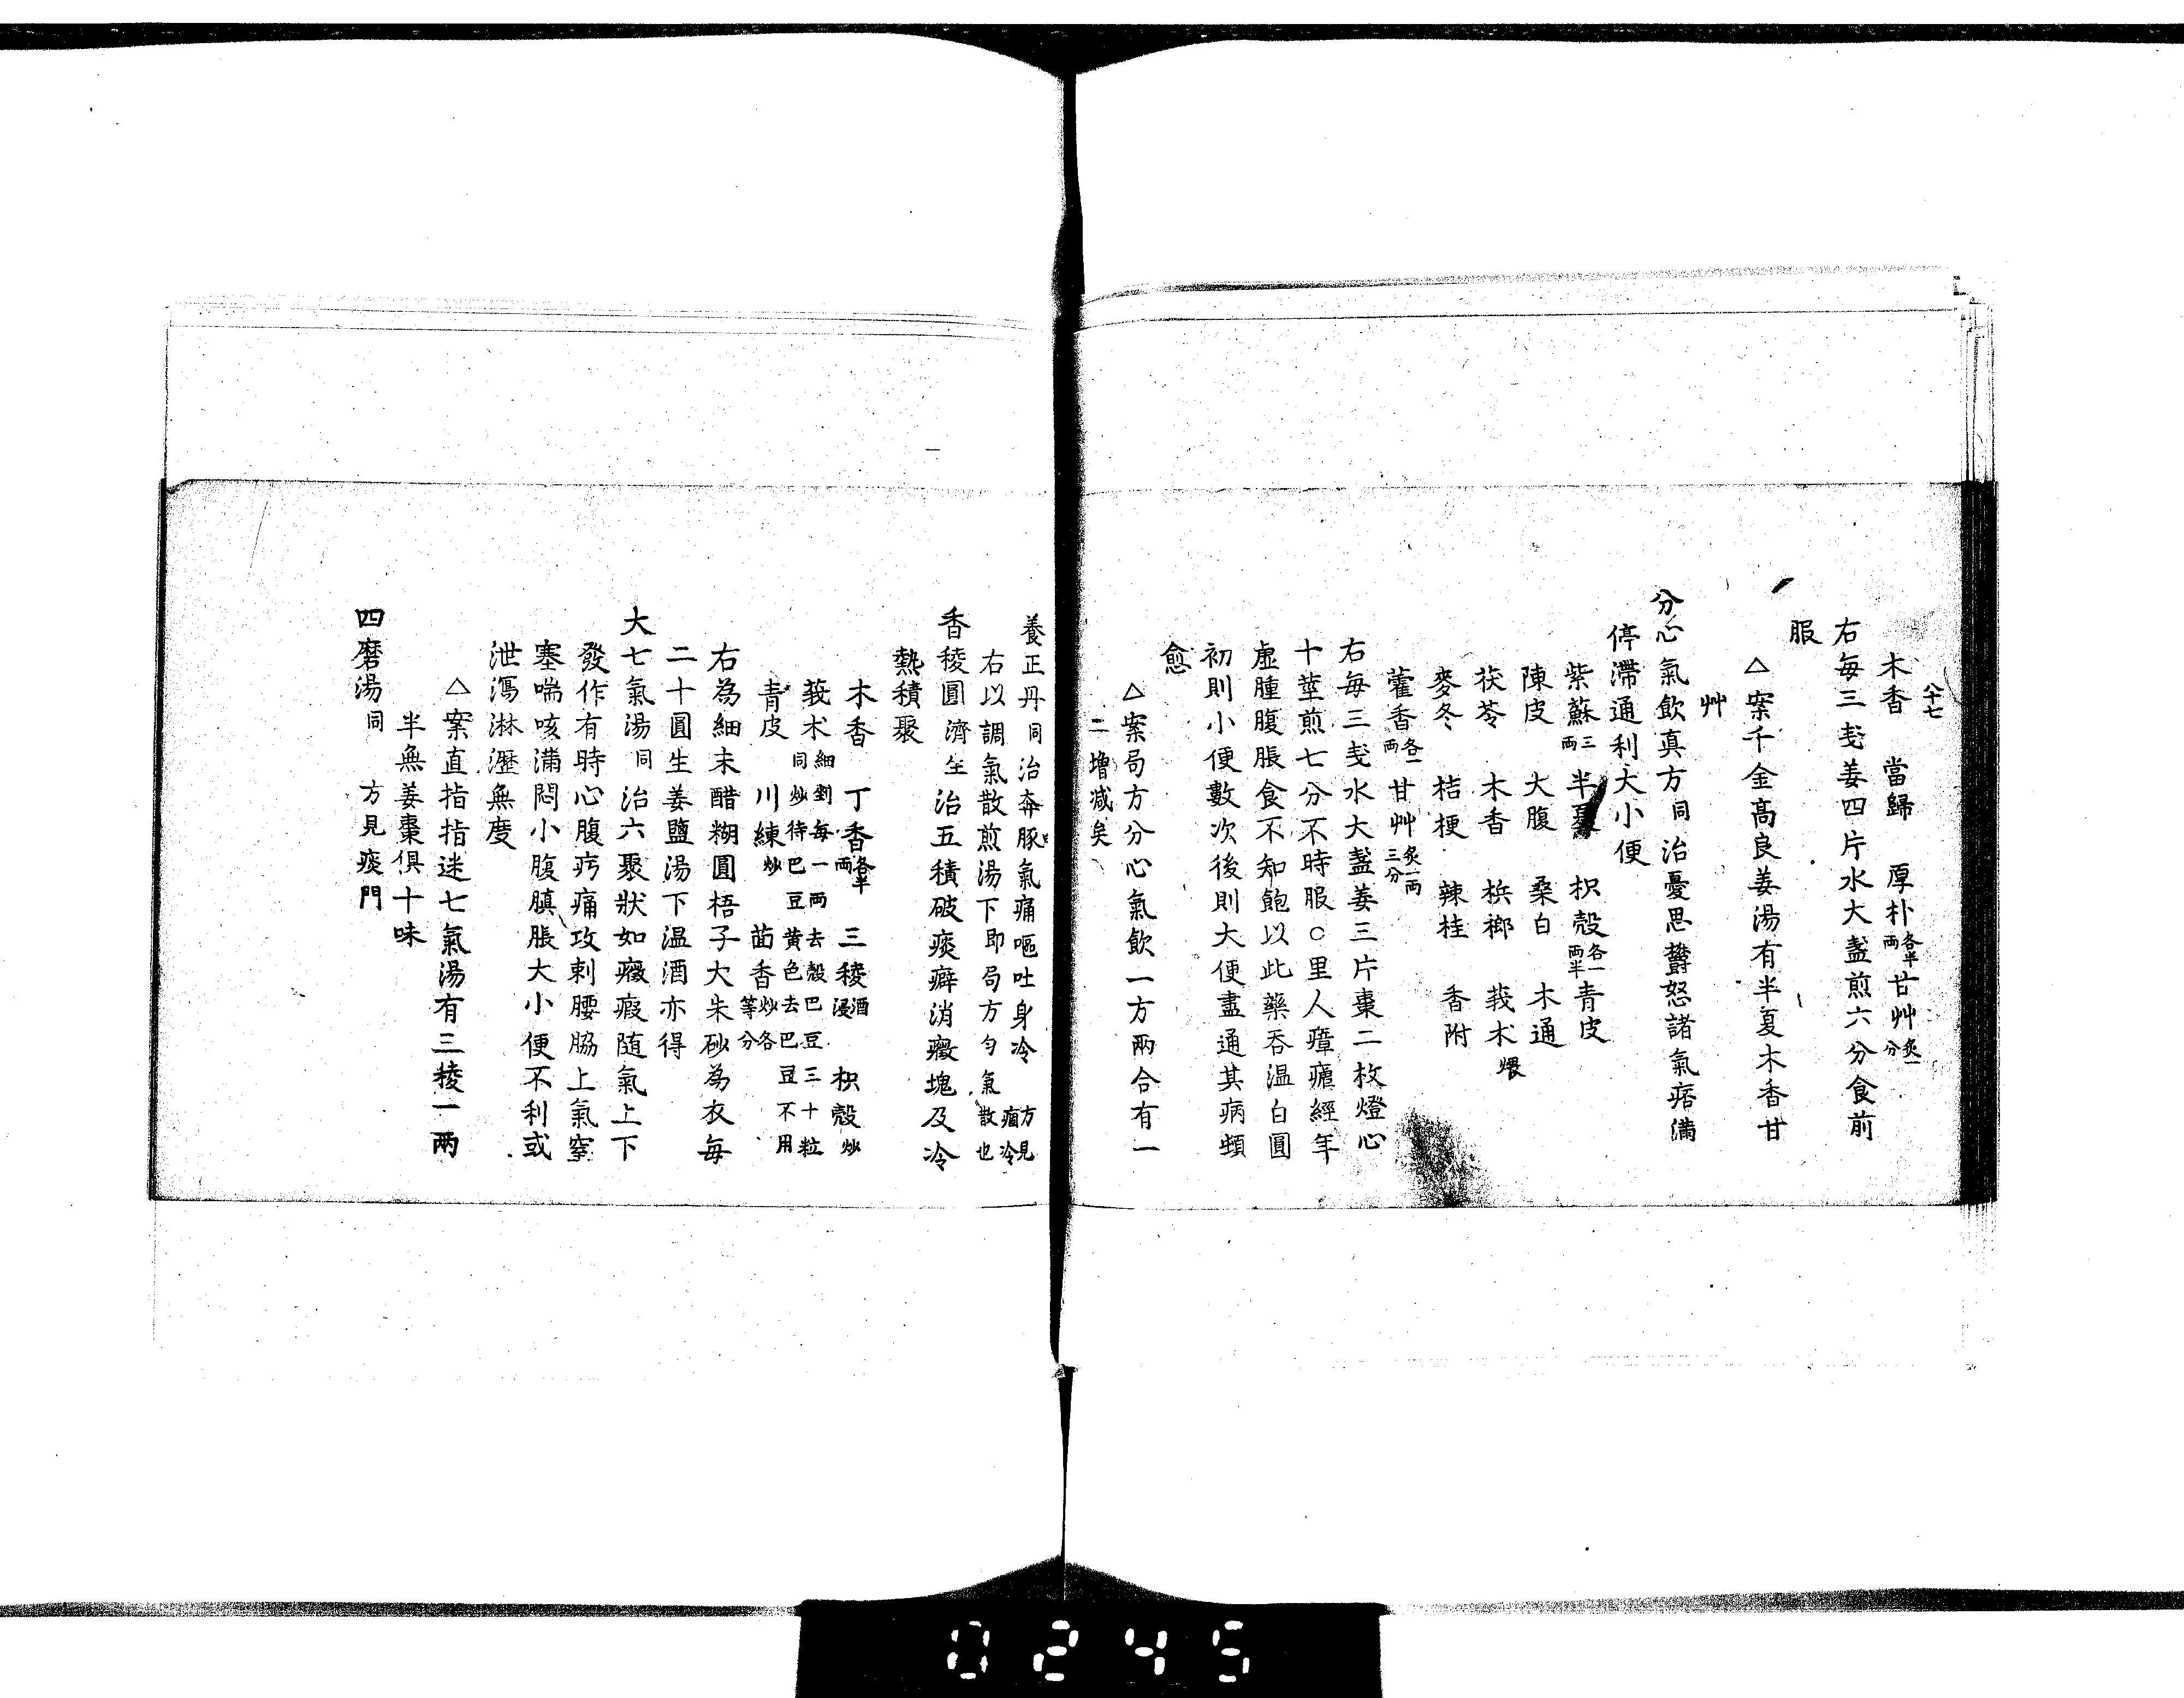 八十七
木香　當歸　厚朴各半両甘艸炙一分
右毎三戔姜四片水大盞煎六分食前
服
△案千金高良姜湯有半夏木香甘
艸
分心氣飲真方同治憂思欝怒諸氣痞満
停滯通利大小便
紫蘇三両半夏　枳殻各一両半青皮
陳皮　大腹　桑白　木通
茯苓　木香　梹榔　莪朮煨
麥冬　桔梗　辣桂　香附
藿香各一両甘艸炙一両三分
右毎三戔水大盞姜三片棗二枚燈心
十莖煎七分不時服○里人瘴瘧經年
虚腫腹脹食不知飽以此藥吞温白圓
初則小便數次後則大便盡通其病頓
愈
△案局方分心氣飲一方兩合有一
二増減矣
養正丹同治奔豚氣痛嘔吐身冷方見痼冷
右以調氣散煎湯下即局方匀氣散也
香稜圓濟生治五積破痰癖消癥塊及冷
熱積聚
木香　丁香各半両　三稜酒浸　枳殻炒
莪朮細剉毎一両去殻巴豆三十粒同炒待巴豆黄色去巴豆不用
青皮　川練炒　茴香炒各等分
右為細末醋糊圓梧子大朱砂為衣毎
二十圓生姜鹽湯下温酒亦得
大七氣湯同治六聚狀如癥瘕随氣上下
發作有時心腹㽲痛攻刺腰脇上氣窒
塞喘咳満悶小腹䐜脹大小便不利或
泄瀉淋瀝無度
△案直指指迷七氣湯有三稜一両
半無姜棗俱十味
四磨湯同　方見痰門
0245